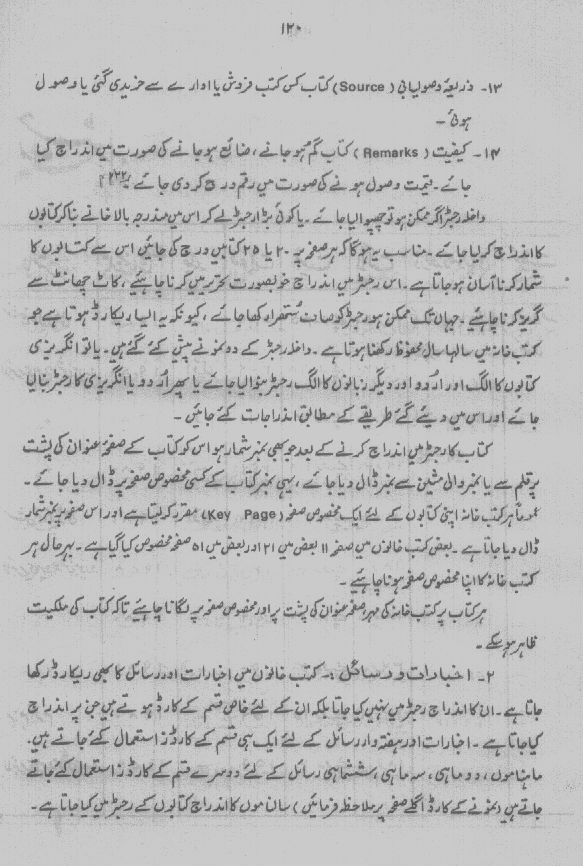 ۱۲۰
۱۳۔ ذریعۂ وصولیابی (Source) کتاب کس کتب فروش یا ادارے سے خریدی گئی یا وصول
ہوئی۔
۱۴۔ کیفیت (Remarks) کتاب گم ہو جانے، ضائع ہو جانے کی صورت میں اندراج کیا
جائے۔ قیمت وصول ہونے کی صورت میں رقم درج کر دی جائے
داخلہ رجسٹر اگر ممکن ہو تو چھپوا لیا جائے۔ یا کوئی بڑا رجسٹر لے کر اس میں مندرجہ بالا خانے بنا کر کتابوں
کا اندراج کر لیا جائے۔ مناسب یہ ہوگا کہ ہر صفحہ پر ۲۰ یا ۲۵ کتابیں درج کی جائیں اس سے کتابوں کا
شمار کرنا آسان ہو جاتا ہے۔ اس رجسٹر میں اندراج خوبصورت تحریر میں کرنا چاہئیے، کاٹ چھانٹ سے
گریز کرنا چاہئیے۔ جہاں تک ممکن ہو رجسٹر کو صاف ستھرا رکھا جائے، کیونکہ یہ ایسا ریکارڈ ہوتا ہے جو
کتب خانہ میں سالہا سال محفوظ رکھنا ہوتا ہے۔ داخلہ رجسٹر کے دو نمونے پیش کئے گئے ہیں۔ یا تو انگریزی
کتابوں کا الگ اور اُردو اور دیگر زبانوں کا الگ رجسٹر بنوا لیا جائے یا پھر اُردو یا انگریزی کا رجسٹر بنا لیا
جائے اور اس میں دیئے گئے طریقے کے مطابق اندراجات کئے جائیں۔
کتاب کا رجسٹر میں اندراج کرنے کے بعد جو بھی نمبر شمار ہو اس کو کتاب کے صفحۂ عنوان کی پشت
پر قلم سے یا نمبر والی مشین سے نمبر ڈال دیا جائے، یہی نمبر کتاب کے کسی مخصوص صفحہ پر ڈال دیا جائے۔
عموماً ہر کتب خانہ اپنی کتابوں کے لئے ایک مخصوص صفحہ (Key Page) مقرر کر لیتا ہے اور اس صفحہ پر نمبر شمار
ڈال دیا جاتا ہے۔ بعض کتب خانوں میں صفحہ ۱۱ بعض میں ۲۱ اور بعض میں ۵۱ صفحہ مخصوص کیا گیا ہے۔ بہرحال ہر
کتب خانہ کا اپنا مخصوص صفحہ ہونا چاہئیے۔
ہر کتاب پر کتب خانہ کی مہر صفحہ عنوان کی پشت پر اور مخصوص صفحہ پر لگانا چاہئیے تاکہ کتاب کی ملکیت
ظاہر ہو سکے۔
۲۔ اخبارات و رسائل :۔ کتب خانوں میں اخبارات اور رسائل کا بھی ریکارڈ رکھا
جاتا ہے۔ ان کا اندراج رجسٹر میں نہیں کیا جاتا بلکہ ان کے لئے خاص قسم کے کارڈ ہوتے ہیں جن پر اندراج
کیا جاتا ہے۔ اخبارات اور ہفتہ وار رسائل کے لئے ایک ہی قسم کے کارڈز استعمال کئے جاتے ہیں۔
ماہناموں، دو ماہی، سہ ماہی، ششماہی رسائل کے لئے دوسرے قسم کے کارڈز استعمال کئے جاتے
جاتے ہیں (نمونے کے کارڈ اگلے صفحہ پر ملاحظہ فرمائیں) سالناموں کا اندراج کتابوں کے رجسٹر میں کیا جاتا ہے۔